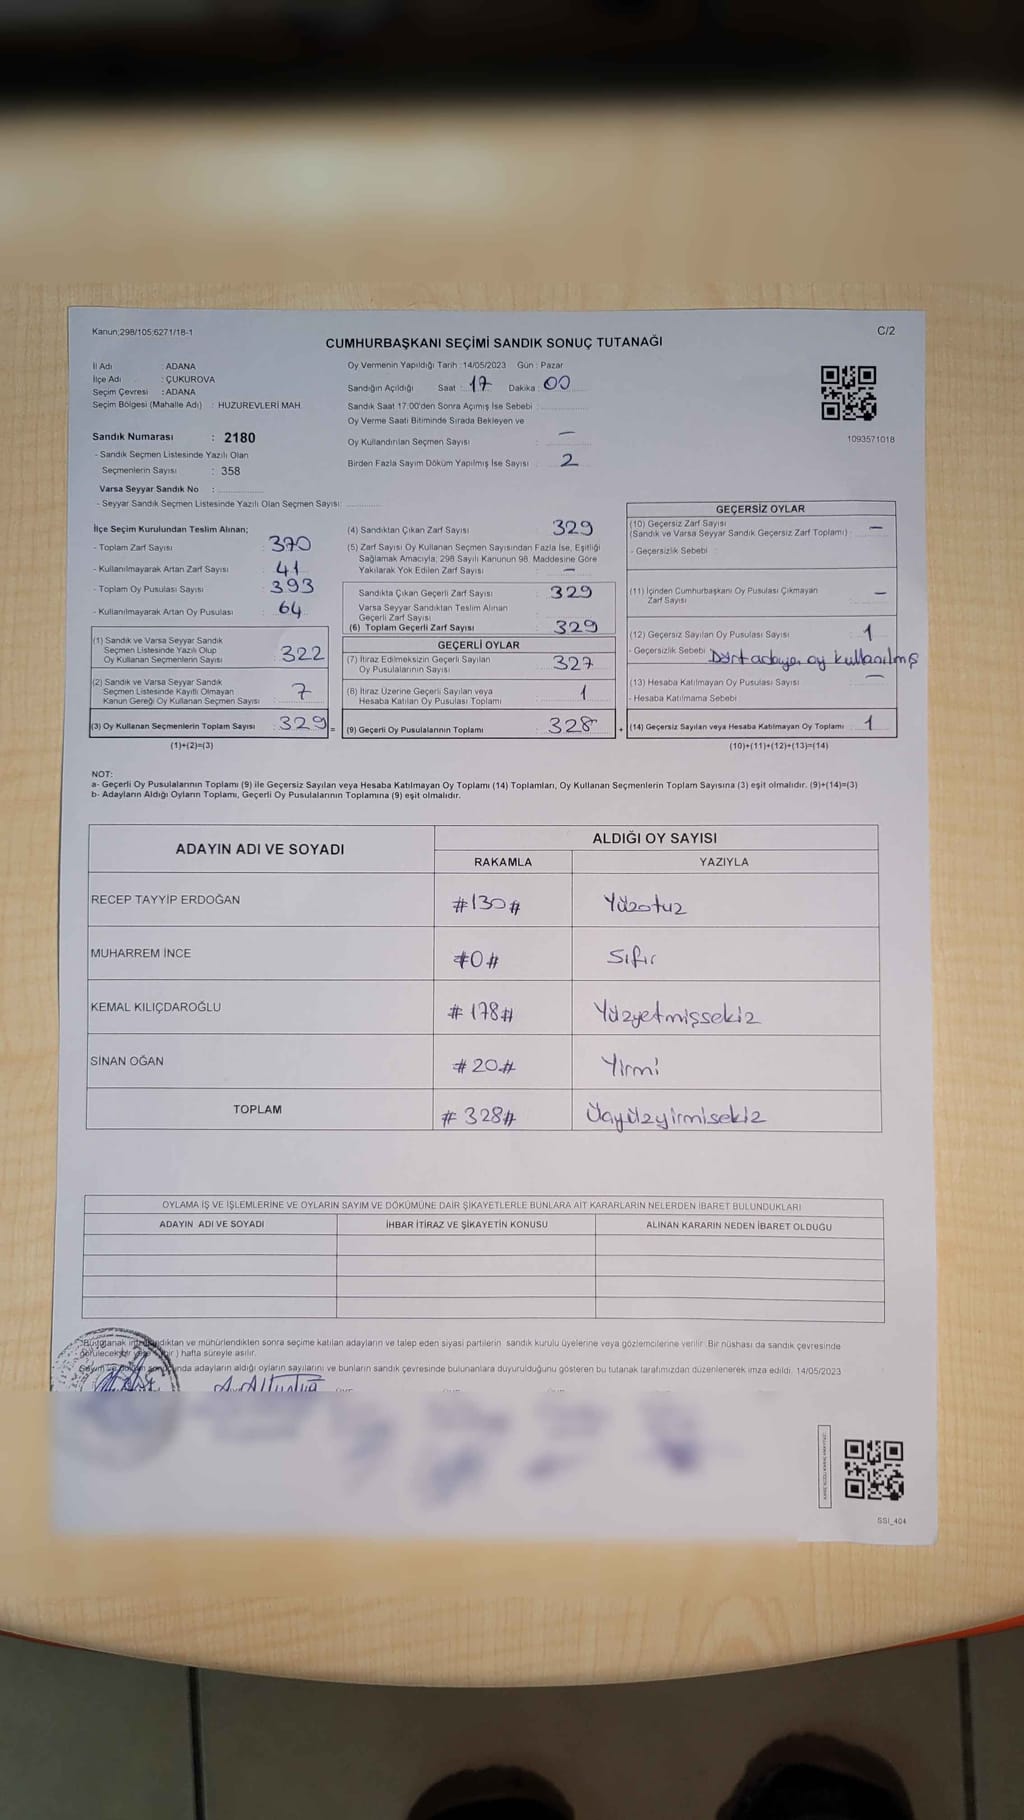 Kanun,298/105;6271/18-1
C/2
CUMHURBAŞKANI SEÇİMİ SANDIK SONUÇ TUTANAĞI
İl Adı : ADANA
İlçe Adı : ÇUKUROVA
Seçim Çevresi : ADANA
Seçim Bölgesi (Mahalle Adı) : HUZUREVLERİ MAH.
Sandık Numarası : 2180
- Sandık Seçmen Listesinde Yazılı Olan
Seçmenlerin Sayısı : 358
Varsa Seyyar Sandık No :
- Seyyar Sandık Seçmen Listesinde Yazılı Olan Seçmen Sayısı:
Oy Vermenin Yapıldığı Tarih :14/05/2023 Gün : Pazar
Sandığın Açıldığı Saat : 17 Dakika : 00
Sandık Saat 17:00'den Sonra Açımış İse Sebebi :
Oy Verme Saati Bitiminde Sırada Bekleyen ve
Oy Kullandırılan Seçmen Sayısı : —
Birden Fazla Sayım Döküm Yapılmış İse Sayısı : 2
1093571018
İlçe Seçim Kurulundan Teslim Alınan;
- Toplam Zarf Sayısı : 370
- Kullanılmayarak Artan Zarf Sayısı : 41
- Toplam Oy Pusulası Sayısı : 393
- Kullanılmayarak Artan Oy Pusulası : 64
(1) Sandık ve Varsa Seyyar Sandık
Seçmen Listesinde Yazılı Olup
Oy Kullanan Seçmenlerin Sayısı : 322
(2) Sandık ve Varsa Seyyar Sandık
Seçmen Listesinde Kayıtlı Olmayan
Kanun Gereği Oy Kullanan Seçmen Sayısı : 7
(3) Oy Kullanan Seçmenlerin Toplam Sayısı : 329
(1)+(2)=(3)
(4) Sandıktan Çıkan Zarf Sayısı : 329
(5) Zarf Sayısı Oy Kullanan Seçmen Sayısından Fazla İse, Eşitliği
Sağlamak Amacıyla, 298 Sayılı Kanunun 98. Maddesine Göre
Yakılarak Yok Edilen Zarf Sayısı : —
Sandıkta Çıkan Geçerli Zarf Sayısı : 329
Varsa Seyyar Sandıktan Teslim Alınan
Geçerli Zarf Sayısı :
(6) Toplam Geçerli Zarf Sayısı : 329
GEÇERLİ OYLAR
(7) İtiraz Edilmeksizin Geçerli Sayılan
Oy Pusulalarının Sayısı : 327
(8) İtiraz Üzerine Geçerli Sayılan veya
Hesaba Katılan Oy Pusulası Toplamı : 1
= (9) Geçerli Oy Pusulalarının Toplamı : 328
GEÇERSİZ OYLAR
(10) Geçersiz Zarf Sayısı
(Sandık ve Varsa Seyyar Sandık Geçersiz Zarf Toplamı) : —
- Geçersizlik Sebebi :
(11) İçinden Cumhurbaşkanı Oy Pusulası Çıkmayan
Zarf Sayısı : —
(12) Geçersiz Sayılan Oy Pusulası Sayısı : 1
- Geçersizlik Sebebi : Dört adaya oy kullanılmış
(13) Hesaba Katılmayan Oy Pusulası Sayısı : —
- Hesaba Katılmama Sebebi :
+ (14) Geçersiz Sayılan veya Hesaba Katılmayan Oy Toplamı : 1
(10)+(11)+(12)+(13)=(14)
NOT:
a- Geçerli Oy Pusulalarının Toplamı (9) ile Geçersiz Sayılan veya Hesaba Katılmayan Oy Toplamı (14) Toplamları, Oy Kullanan Seçmenlerin Toplam Sayısına (3) eşit olmalıdır. (9)+(14)=(3)
b- Adayların Aldığı Oyların Toplamı, Geçerli Oy Pusulalarının Toplamına (9) eşit olmalıdır.
ADAYIN ADI VE SOYADI ALDIĞI OY SAYISI
RAKAMLA YAZIYLA
RECEP TAYYİP ERDOĞAN #130# Yüzotuz
MUHARREM İNCE #0# Sıfır
KEMAL KILIÇDAROĞLU #178# Yüzyetmişsekiz
SİNAN OĞAN #20# Yirmi
TOPLAM #328# Üçyüzyirmisekiz
OYLAMA İŞ VE İŞLEMLERİNE VE OYLARIN SAYIM VE DÖKÜMÜNE DAİR ŞİKAYETLERLE BUNLARA AİT KARARLARIN NELERDEN İBARET BULUNDUKLARI
ADAYIN ADI VE SOYADI İHBAR İTİRAZ VE ŞİKAYETİN KONUSU ALINAN KARARIN NEDEN İBARET OLDUĞU
Bu tutanak ve mühürlendikten sonra seçime katılan adayların ve talep eden siyasi partilerin sandık kurulu üyelerine veya gözlemcilerine verilir. Bir nüshası da sandık çevresinde
görülecek bir yere ) hafta süreyle asılır.
adayların aldığı oyların sayılarını ve bunların sandık çevresinde bulunanlara duyurulduğunu gösteren bu tutanak tarafımızdan düzenlenerek imza edildi. 14/05/2023
SSI_404